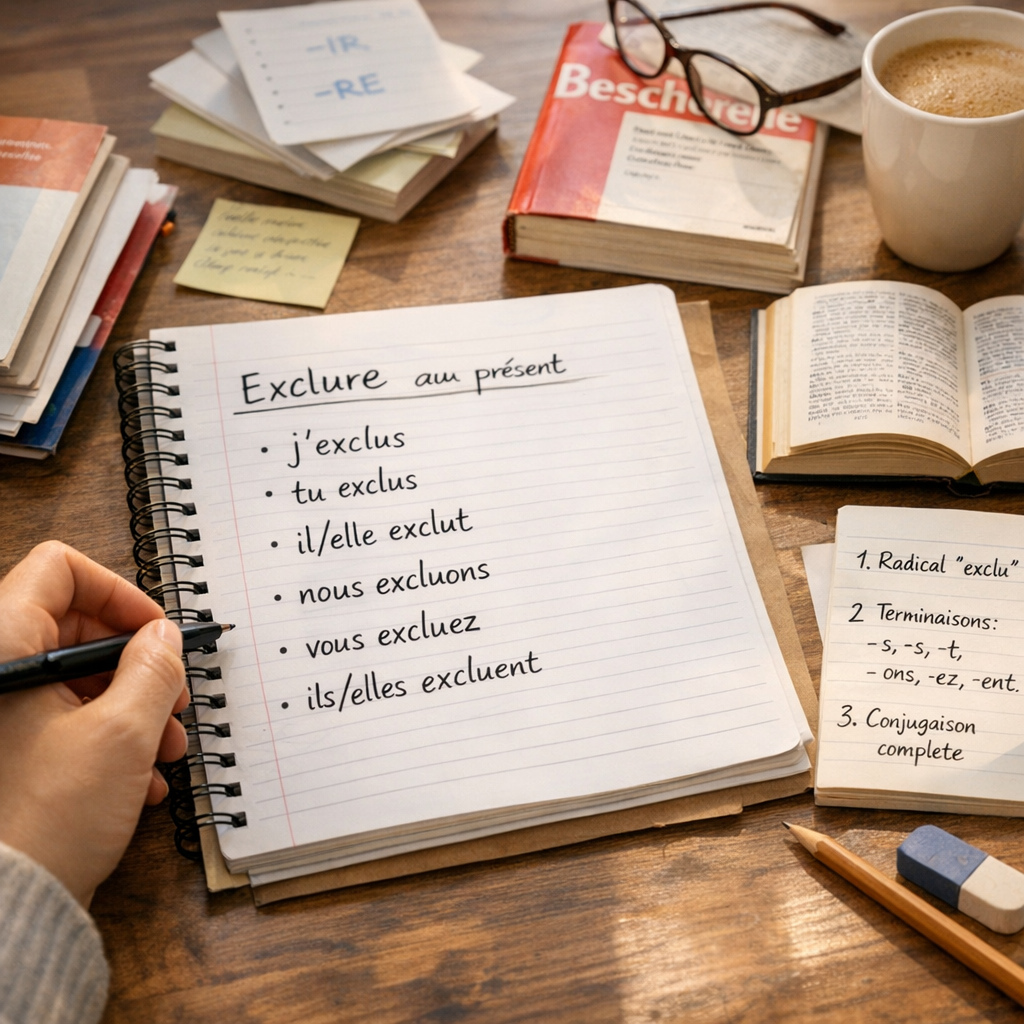 -IR
-RE
Bescherelle
Exclure au présent
• j'exclus
• tu exclus
• il/elle exclut
• nous excluons
• vous excluez
• ils/elles excluent
1. Radical "exclu"
2 Terminaisons:
-s, -s, -t,
- ons, -ez, -ent.
3. Conjugaison
complete